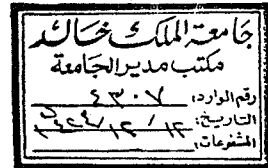 جامعة الملك خالد
مكتب مدير الجامعة
رقم الوارد: ٤٣٠٧
التاريخ:
المشفوعات: